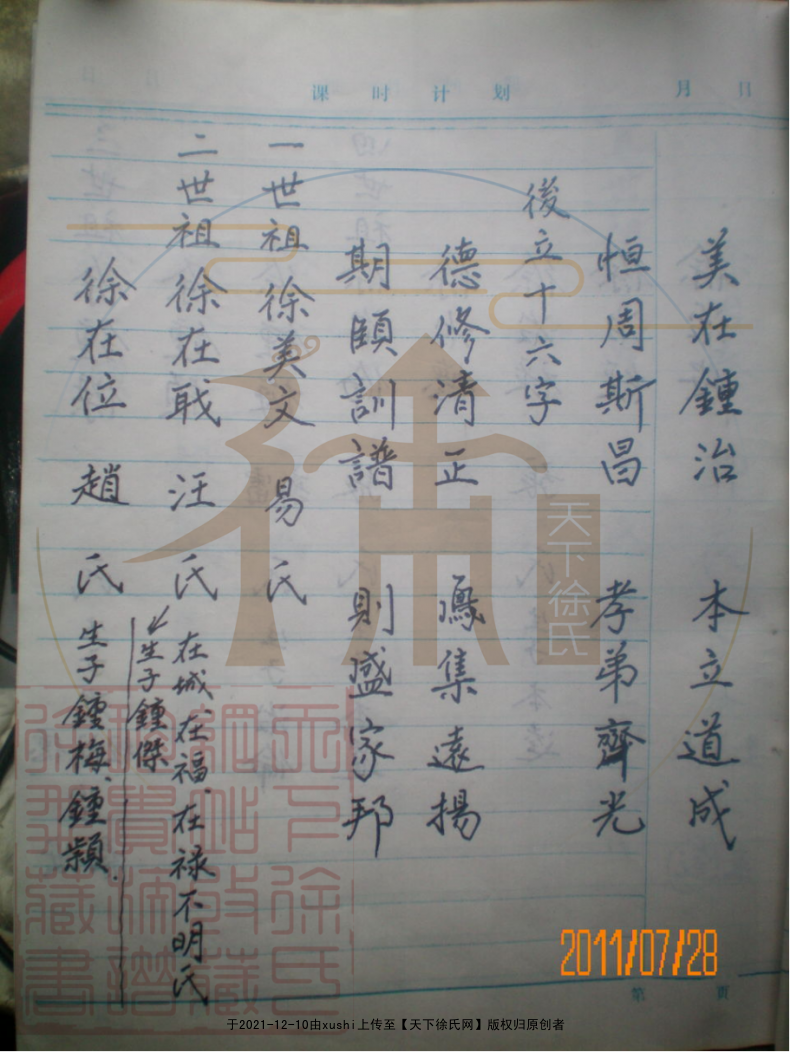 课时计划 月 日
美在鍾治 本立道成
恒周斯昌 孝弟齊光
後立十六字
德修清正 鳳集遠揚
期頤訓譜 則盛家邦
一世祖徐美文 易氏
二世祖徐在戢 汪氏
在城、在福、在禄不明氏
生子鍾傑
徐在位 趙氏
生子鍾梅、鍾颖.
天下徐氏
2011/07/28
第 页
于2021-12-10由xushi上传至【天下徐氏网】版权归原创者